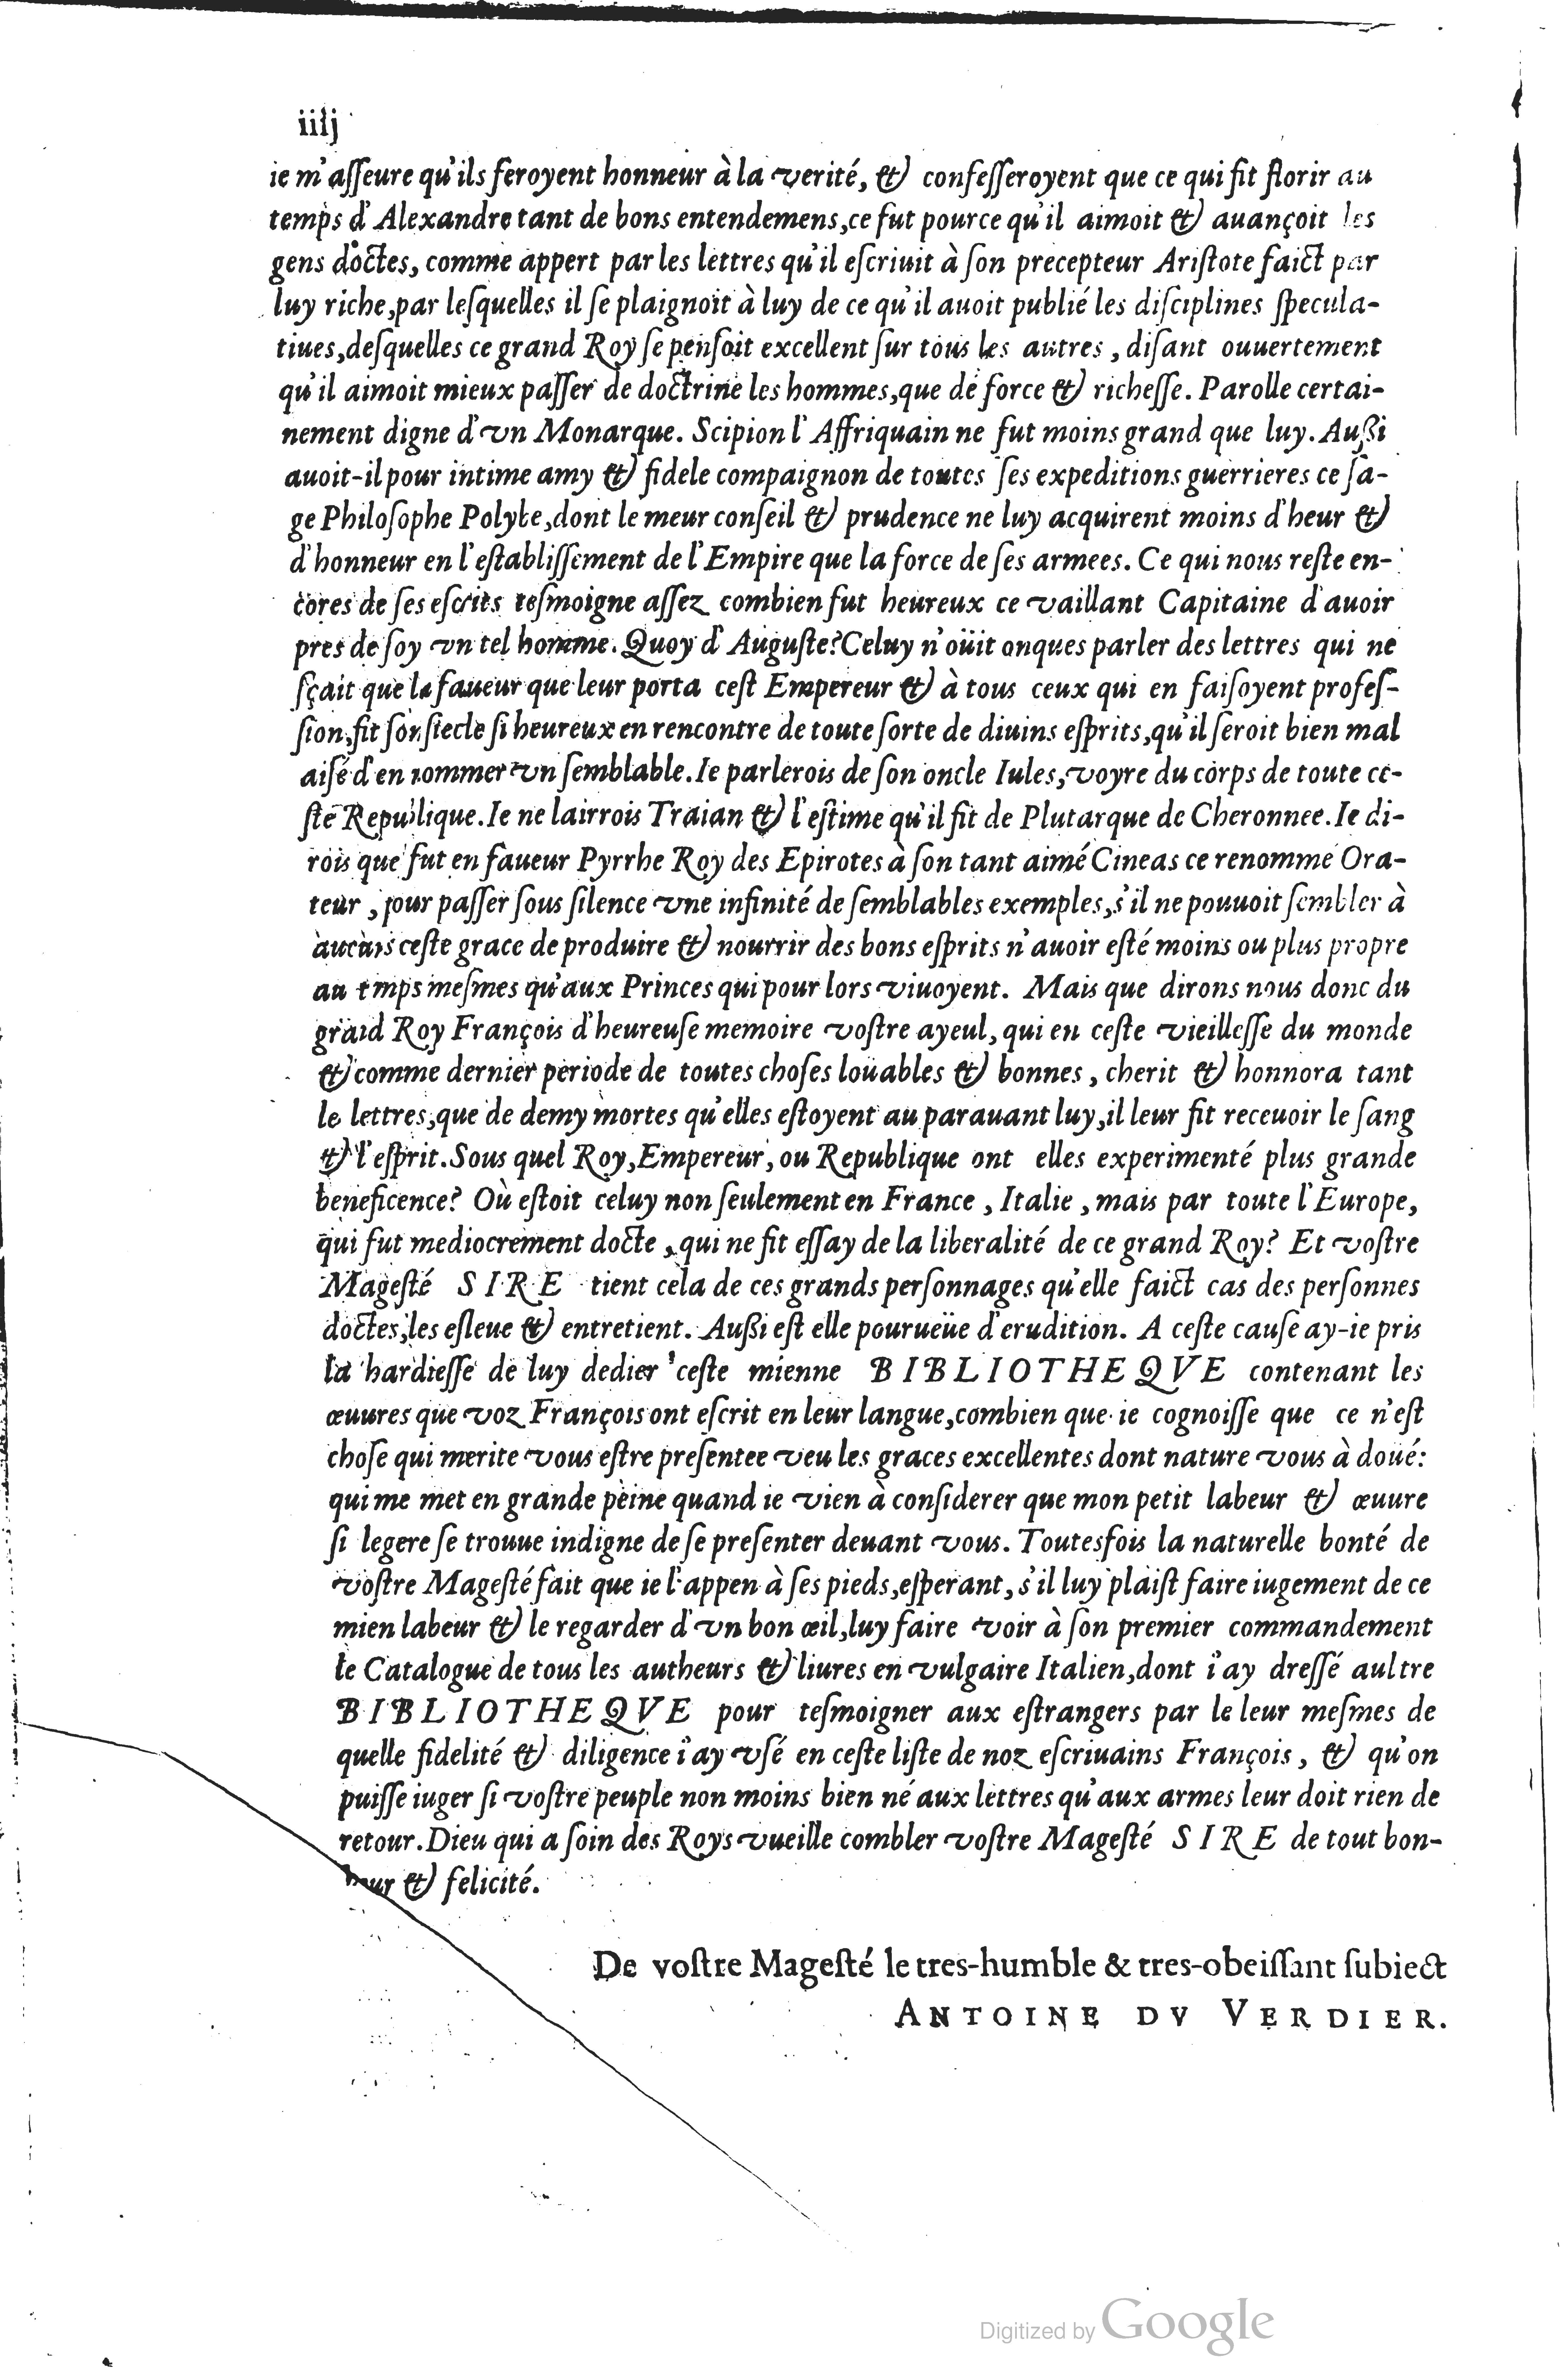 iiij
ie m'aſſeure qu'ils feroyent honneur à la verité, & confeſſeroyent que ce qui fit florir au
temps d'Alexandre tant de bons entendemens,ce fut pource qu'il aimoit & auançoit les
gens doctes, comme appert par les lettres qu'il eſcriuit à ſon precepteur Ariſtote faict par
luy riche,par leſquelles il ſe plaignoit à luy de ce qu'il auoit publié les diſciplines ſpecula-
tiues,deſquelles ce grand Roy ſe penſoit excellent ſur tous les autres , diſant ouuertement
qu'il aimoit mieux paſſer de doctrine les hommes,que de force & richeſſe. Parolle certai-
nement digne d'vn Monarque. Scipion l'Affriquain ne fut moins grand que luy. Außi
auoit-il pour intime amy & fidele compaignon de toutes ſes expeditions guerrieres ce ſa-
ge Philoſophe Polybe,dont le meur conſeil & prudence ne luy acquirent moins d'heur &
d'honneur en l'eſtabliſſement de l'Empire que la force de ſes armees. Ce qui nous reſte en-
cores de ſes eſcrits teſmoigne aſſez combien fut heureux ce vaillant Capitaine d'auoir
pres de ſoy vn tel homme. Quoy d'Auguſte?Celuy n'oüit onques parler des lettres qui ne
ſçait que la faueur que leur porta ceſt Empereur & à tous ceux qui en faiſoyent profeſ-
ſion,fit ſon ſiecle ſi heureux en rencontre de toute ſorte de diuins eſprits,qu'il ſeroit bien mal
aiſé d'en nommer vn ſemblable. Ie parlerois de ſon oncle Iules,voyre du corps de toute ce-
ſte Republique. Ie ne lairrois Traian & l'eſtime qu'il fit de Plutarque de Cheronnee. Ie di-
rois que fut en faueur Pyrrhe Roy des Epirotes à ſon tant aimé Cineas ce renommé Ora-
teur , pour paſſer ſous ſilence vne infinité de ſemblables exemples,s'il ne pouuoit ſembler à
aucuns ceſte grace de produire & nourrir des bons eſprits n'auoir eſté moins ou plus propre
au temps meſmes qu'aux Princes qui pour lors viuoyent. Mais que dirons nous donc du
grand Roy François d'heureuſe memoire voſtre ayeul, qui en ceſte vieilleſſe du monde
& comme dernier periode de toutes choſes loüables & bonnes , cherit & honnora tant
les lettres,que de demy mortes qu'elles eſtoyent au parauant luy,il leur fit receuoir le ſang
& l'eſprit. Sous quel Roy,Empereur, ou Republique ont elles experimenté plus grande
beneficence? Où eſtoit celuy non ſeulement en France , Italie , mais par toute l'Europe,
qui fut mediocrement docte , qui ne fit eſſay de la liberalité de ce grand Roy? Et voſtre
Mageſté SIRE tient cela de ces grands perſonnages qu'elle faict cas des perſonnes
doctes,les eſleue & entretient. Außi eſt elle pourueüe d'erudition. A ceſte cauſe ay-ie pris
la hardieſſe de luy dedier ceſte mienne BIBLIOTHEQVE contenant les
œuures que voz François ont eſcrit en leur langue,combien que ie cognoiſſe que ce n'eſt
choſe qui merite vous eſtre preſentee veu les graces excellentes dont nature vous à doüé:
qui me met en grande peine quand ie vien à conſiderer que mon petit labeur & œuure
ſi legere ſe trouue indigne de ſe preſenter deuant vous. Toutesfois la naturelle bonté de
voſtre Mageſté fait que ie l'appen à ſes pieds,eſperant,s'il luy plaiſt faire iugement de ce
mien labeur & le regarder d'vn bon œil,luy faire voir à ſon premier commandement
le Catalogue de tous les autheurs & liures en vulgaire Italien,dont i'ay dreſſé aultre
BIBLIOTHEQVE pour teſmoigner aux eſtrangers par le leur meſmes de
quelle fidelité & diligence i'ay vſé en ceſte liſte de noz eſcriuains François , & qu'on
puiſſe iuger ſi voſtre peuple non moins bien né aux lettres qu'aux armes leur doit rien de
retour. Dieu qui a ſoin des Roys vueille combler voſtre Mageſté SIRE de tout bon-
heur & felicité.
De voſtre Mageſté le tres-humble & tres-obeiſſant ſubiect
ANTOINE DV VERDIER.
Digitized by Google